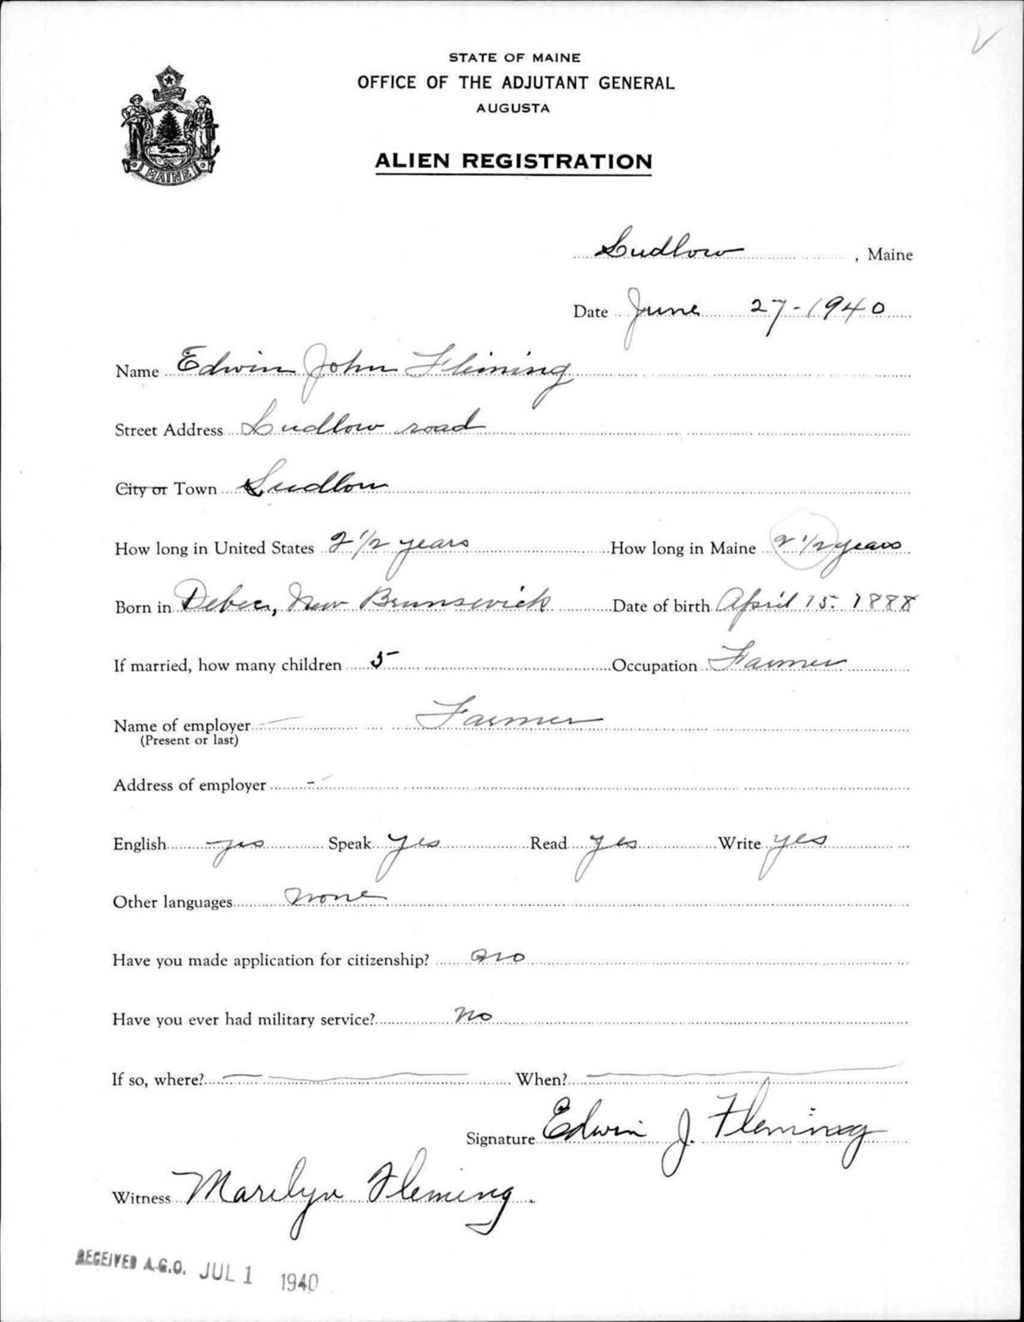 STATE OF MAINE
OFFICE OF THE ADJUTANT GENERAL
AUGUSTA
MAINE
ALIEN REGISTRATION
Ludlow, Maine
Date June 27-1940
Name Edwin John Fleming
Street Address Ludlow road
City or Town Ludlow
How long in United States 2 1/2 years How long in Maine 2 1/2 years
Born in Debec, New Brunswick Date of birth April 15. 1888
If married, how many children 5 Occupation Farmer
Name of employer Farmer
(Present or last)
Address of employer -
English yes Speak yes Read yes Write yes
Other languages none
Have you made application for citizenship? no
Have you ever had military service? no
If so, where? When?
Signature Edwin J. Fleming
Witness Marilyn Fleming.
RECEIVED A.G.O. JUL 1 1940